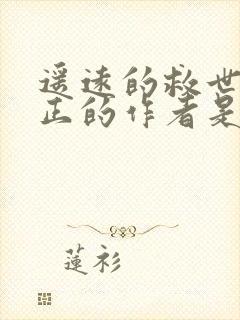 遥远的救世
正的作者是
蓮衫